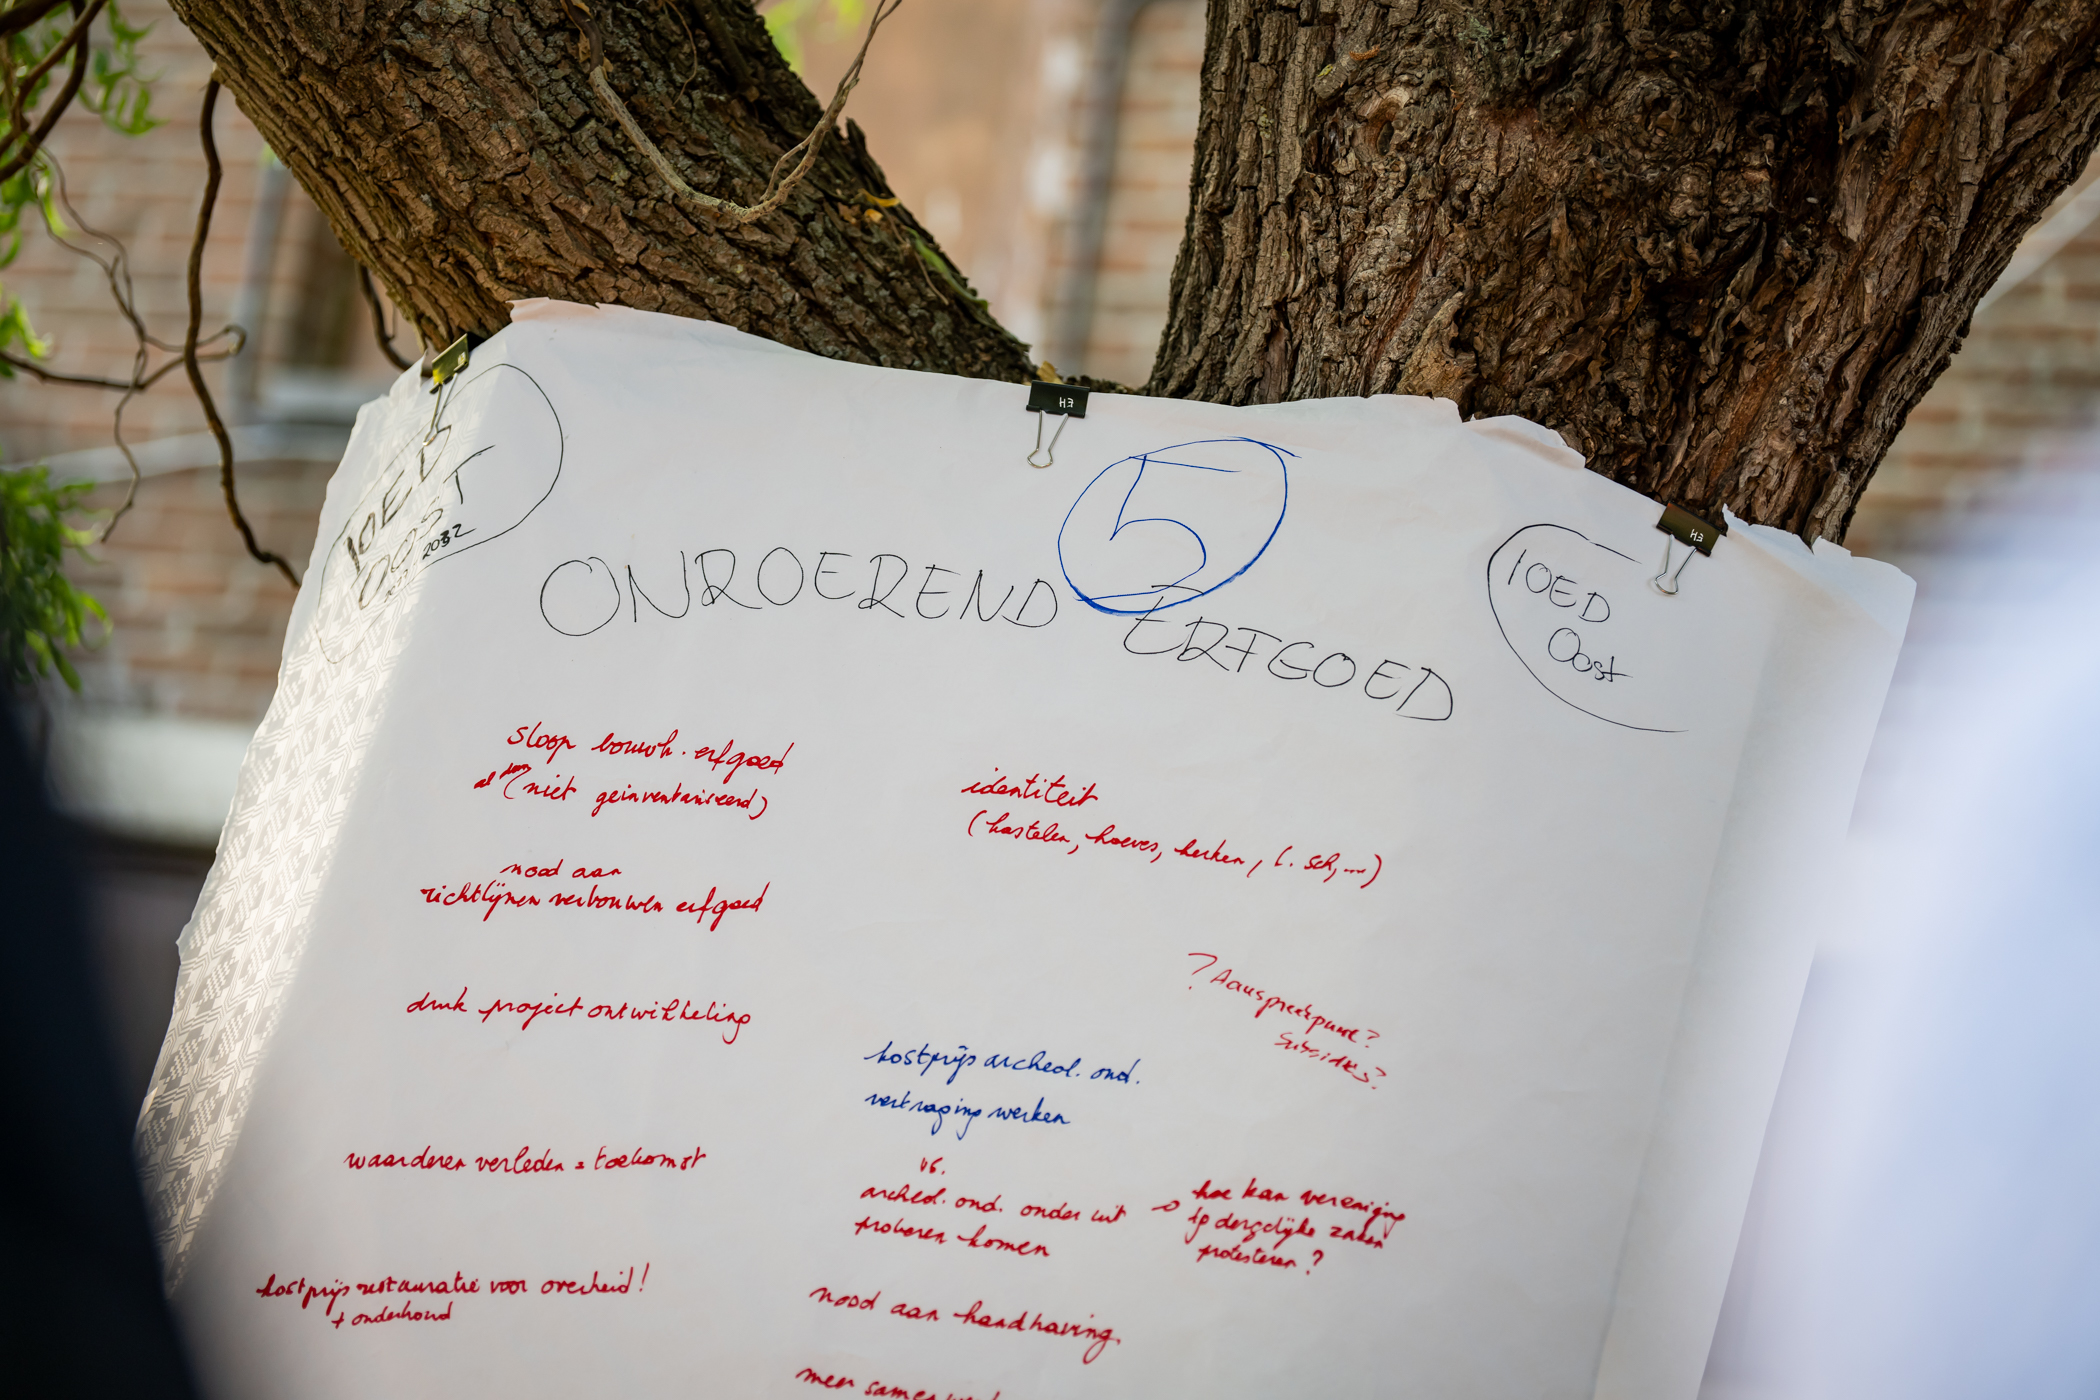 IOED
OOST
2032
5
ONROEREND ERFGOED
IOED
Oost
sloop bouwk. erfgoed
al dan (niet geïnventariseerd)
nood aan
richtlijnen verbouwen erfgoed
druk projectontwikkeling
waarderen verleden = toekomst
kostprijs restauratie voor overheid!
+ onderhoud
identiteit
(kastelen, hoeves, kerken, ...)
? Aanspreekpunt?
Subsidies?
kostprijs archeol. ond.
vertraging werken
vs.
archeol. ond. onder uit
proberen komen
hoe kan vereniging
tg dergelijke zaken
protesteren?
nood aan handhaving.
meer